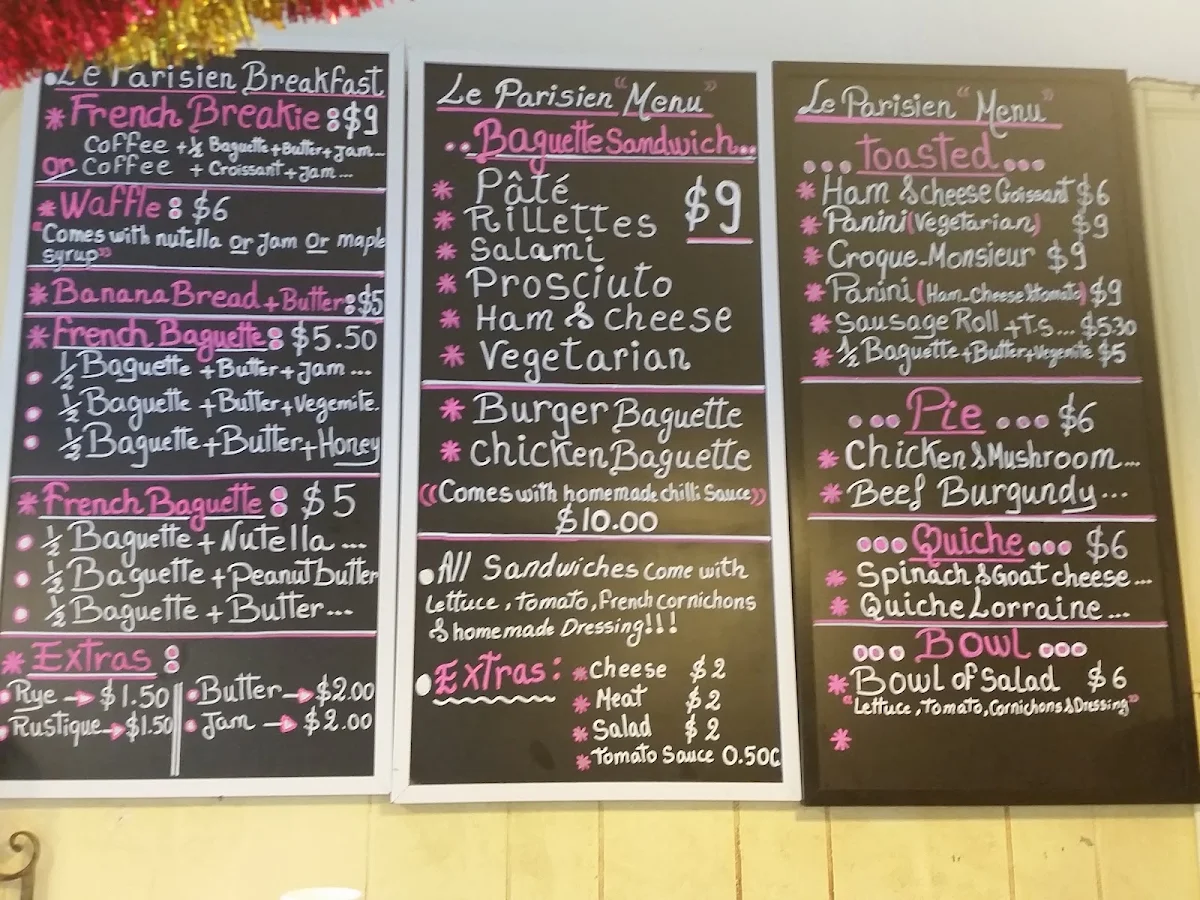 Le Parisien Breakfast
* French Breakie : $9
Coffee + ½ Baguette + Butter + Jam...
or Coffee + Croissant + Jam...
* Waffle : $6
"Comes with nutella or Jam Or maple
syrup"
* Banana Bread + Butter : $5
* French Baguette : $5.50
• ½ Baguette + Butter + Jam ...
• ½ Baguette + Butter + Vegemite.
• ½ Baguette + Butter + Honey
* French Baguette : $5
• ½ Baguette + Nutella ...
• ½ Baguette + Peanut butter
• ½ Baguette + Butter...
* Extras :
• Rye → $1.50
• Rustique → $1.50
• Butter → $2.00
• Jam → $2.00
Le Parisien "Menu"
.. Baguette Sandwich ..
* Pâté $9
* Rillettes
* Salami
* Prosciuto
* Ham & cheese
* Vegetarian
* Burger Baguette
* Chicken Baguette
((Comes with homemade chilli Sauce))
$10.00
• All Sandwiches come with
Lettuce, Tomato, French Cornichons
& homemade Dressing!!!
• Extras:
* Cheese $2
* Meat $2
* Salad $2
* Tomato Sauce 0.50c
Le Parisien "Menu"
... toasted ...
* Ham & cheese Croissant $6
* Panini (Vegetarian) $9
* Croque-Monsieur $9
* Panini (Ham-Cheese & tomato) $9
* Sausage Roll + T.S... $5.30
* ½ Baguette + Butter + Vegemite $5
... Pie ... $6
* Chicken & Mushroom...
* Beef Burgundy...
... Quiche ... $6
* Spinach & Goat cheese...
* Quiche Lorraine ...
... Bowl ...
* Bowl of Salad $6
"Lettuce, Tomato, Cornichons & Dressing"
*